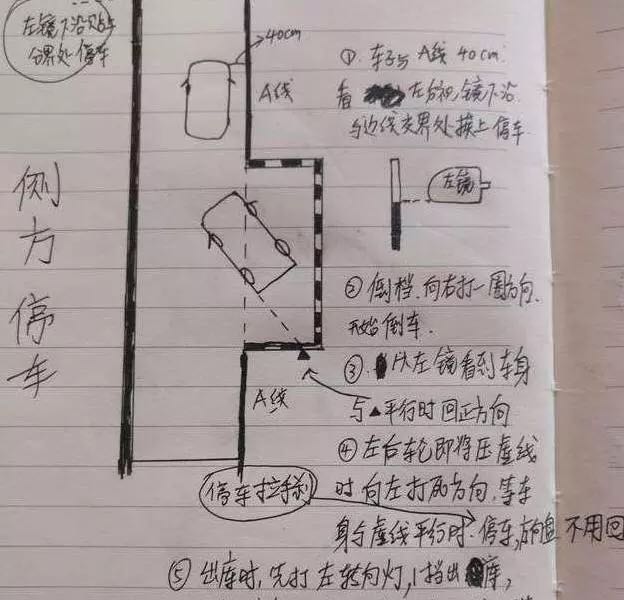 左镜下沿贴车
分界处停车
侧方停车
40cm
A线
① 车子与A线 40cm.
看 左后视镜下沿
与边线交界处摸上停车
左镜
② 倒档,向右打一圈方向,
开始倒车.
③ 从左镜看到车身
与▲平行时回正方向
A线
④ 左后轮即将压虚线
时向左打死方向,等车
身与虚线平行时.停车,方向盘不用回
停车拉手刹
⑤ 出库时,先打左转向灯,1挡出库,